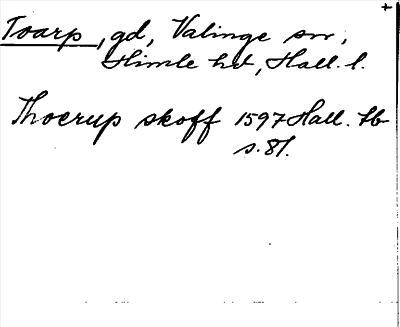 +
Toarp, gd, Valinge sn,
Himle hd, Hall. l.
Thoerup skoff 1597 Hall. Hb
s. 81.